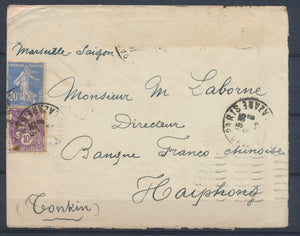 Marseille Saigon
Monsieur M Laborne
Directeur
Banque Franco chinoise
Haïphong
(Tonkin)